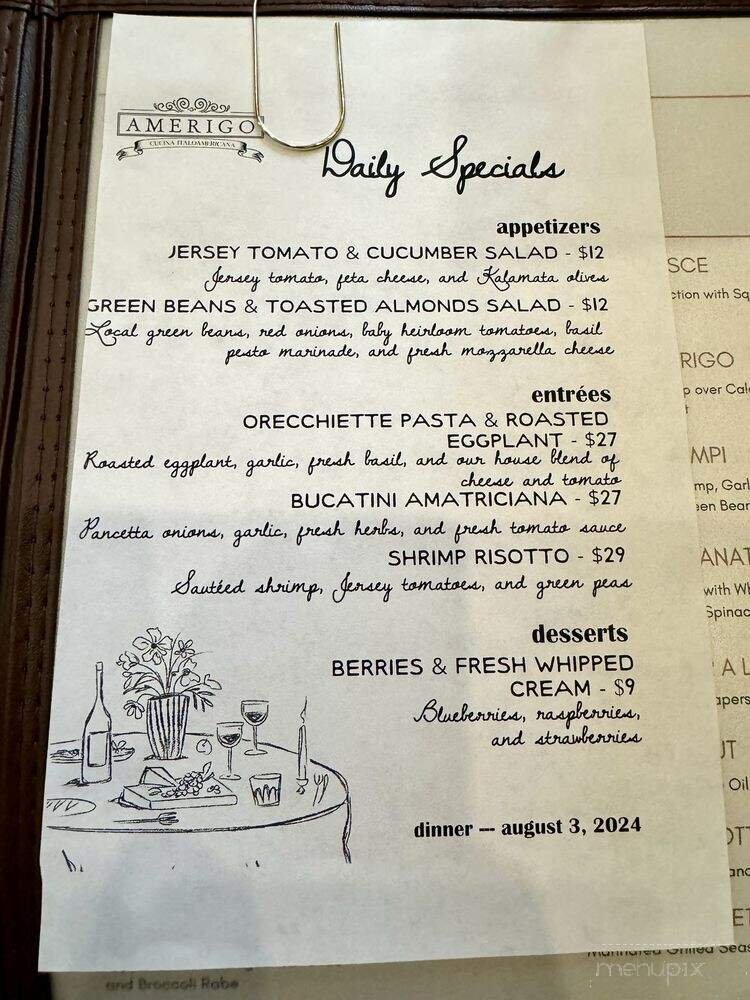 AMERIGO
CUCINA ITALOAMERICANA
Daily Specials
appetizers
JERSEY TOMATO & CUCUMBER SALAD - $12
Jersey tomato, feta cheese, and Kalamata olives
GREEN BEANS & TOASTED ALMONDS SALAD - $12
Local green beans, red onions, baby heirloom tomatoes, basil
pesto marinade, and fresh mozzarella cheese
entrées
ORECCHIETTE PASTA & ROASTED
EGGPLANT - $27
Roasted eggplant, garlic, fresh basil, and our house blend of
cheese and tomato
BUCATINI AMATRICIANA - $27
Pancetta onions, garlic, fresh herbs, and fresh tomato sauce
SHRIMP RISOTTO - $29
Sautéed shrimp, Jersey tomatoes, and green peas
desserts
BERRIES & FRESH WHIPPED
CREAM - $9
Blueberries, raspberries,
and strawberries
dinner --- august 3, 2024
SCE
ction with Sq
RIGO
p over Cal
t
MPI
mp, Garl
en Bear
ANAT
with Wh
Spinac
A L
apers
UT
Oil
OTT
anc
ET
Marinated Grilled Seas
and Broccoli Rabe
menupix